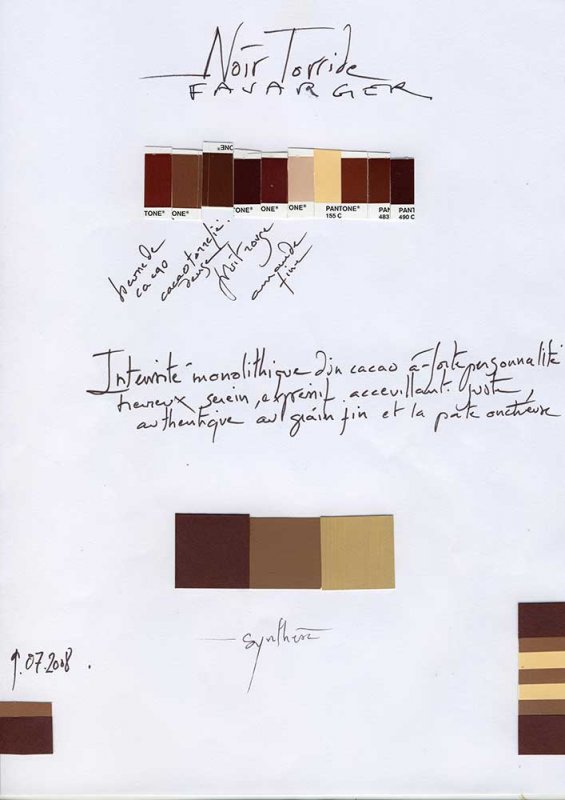 Noir Torride
FAVARGER
ONE®
TONE® ONE® ONE® ONE® ONE® PANTONE® PAN PANT
155 C 483 490 C
beurre de
cacao
cacao torréfié
dense
fruit rouge
amande
fine
Intensité monolithique d'un cacao à forte personnalité
heureux, serein, expressif accueillant juste,
authentique au grain fin et la pâte onctueuse
synthèse
.07.2008.